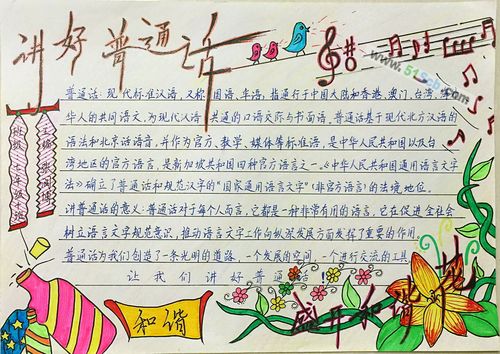 讲好普通话
普通话,现代标准汉语,又称国语、华语,指通行于中国大陆和香港、澳门、台湾、海
华人的共同语文,为现代汉语共通的口语交际与书面语。普通话基于现代北方汉语的
语法和北京话语音,并作为官方、教学、媒体等标准语,是中华人民共和国以及台
湾地区的官方语言,是新加坡共和国四种官方语言之一。《中华人民共和国通用语言文字
法》确立了普通话和规范汉字的“国家通用语言文字”(非官方语言)的法境地位。
讲普通话的意义:普通话对于每个人而言,它都是一种非常有用的语言,它在促进全社会
树立语言文字规范意识,推动语言文字工作向纵深发展方面发挥了重要的作用。
普通话为我们创造了一条光明的道路,一个发展的空间,一个进行交流的工具。
让我们讲好普通话!
和谐
盛开和谐花